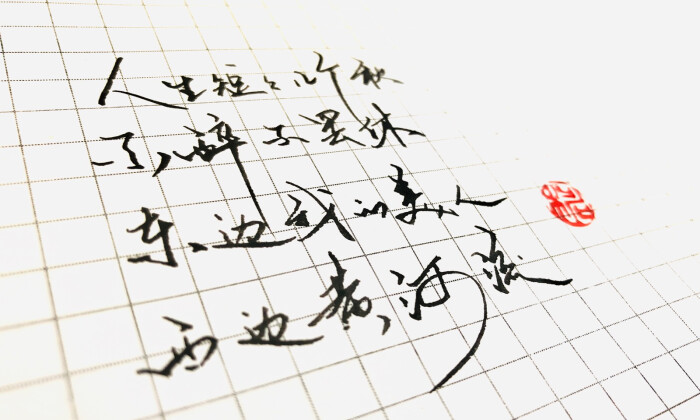 人生短々几个秋
不醉不罢休
东边我的美人
西边黄河流